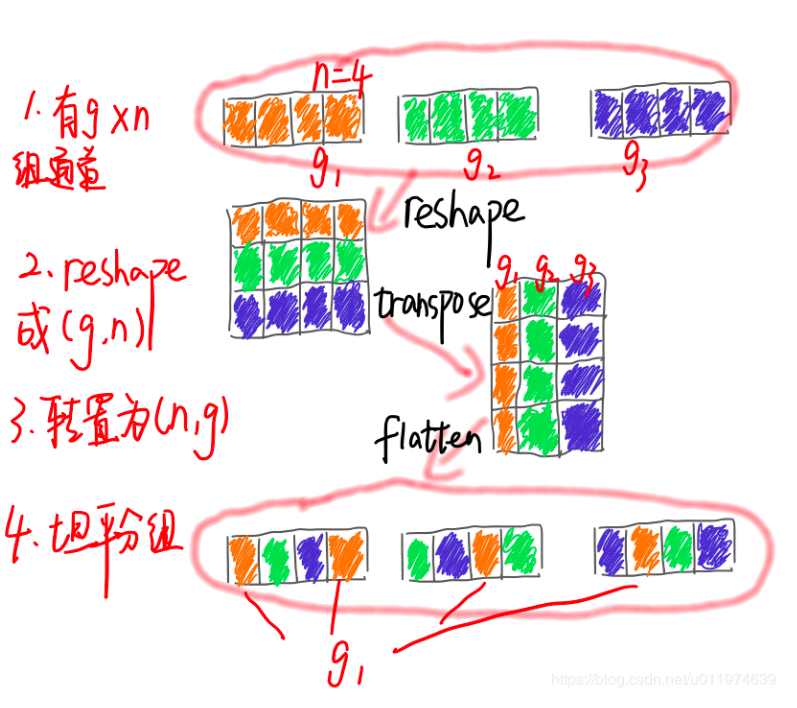 n=4
1. 有g×n
组通道
g₁
g₂
g₃
reshape
2. reshape
成(g,n)
g₁ g₂ g₃
transpose
3. 转置为(n,g)
flatten
4. 坦平分组
g₁
https://blog.csdn.net/u011974639